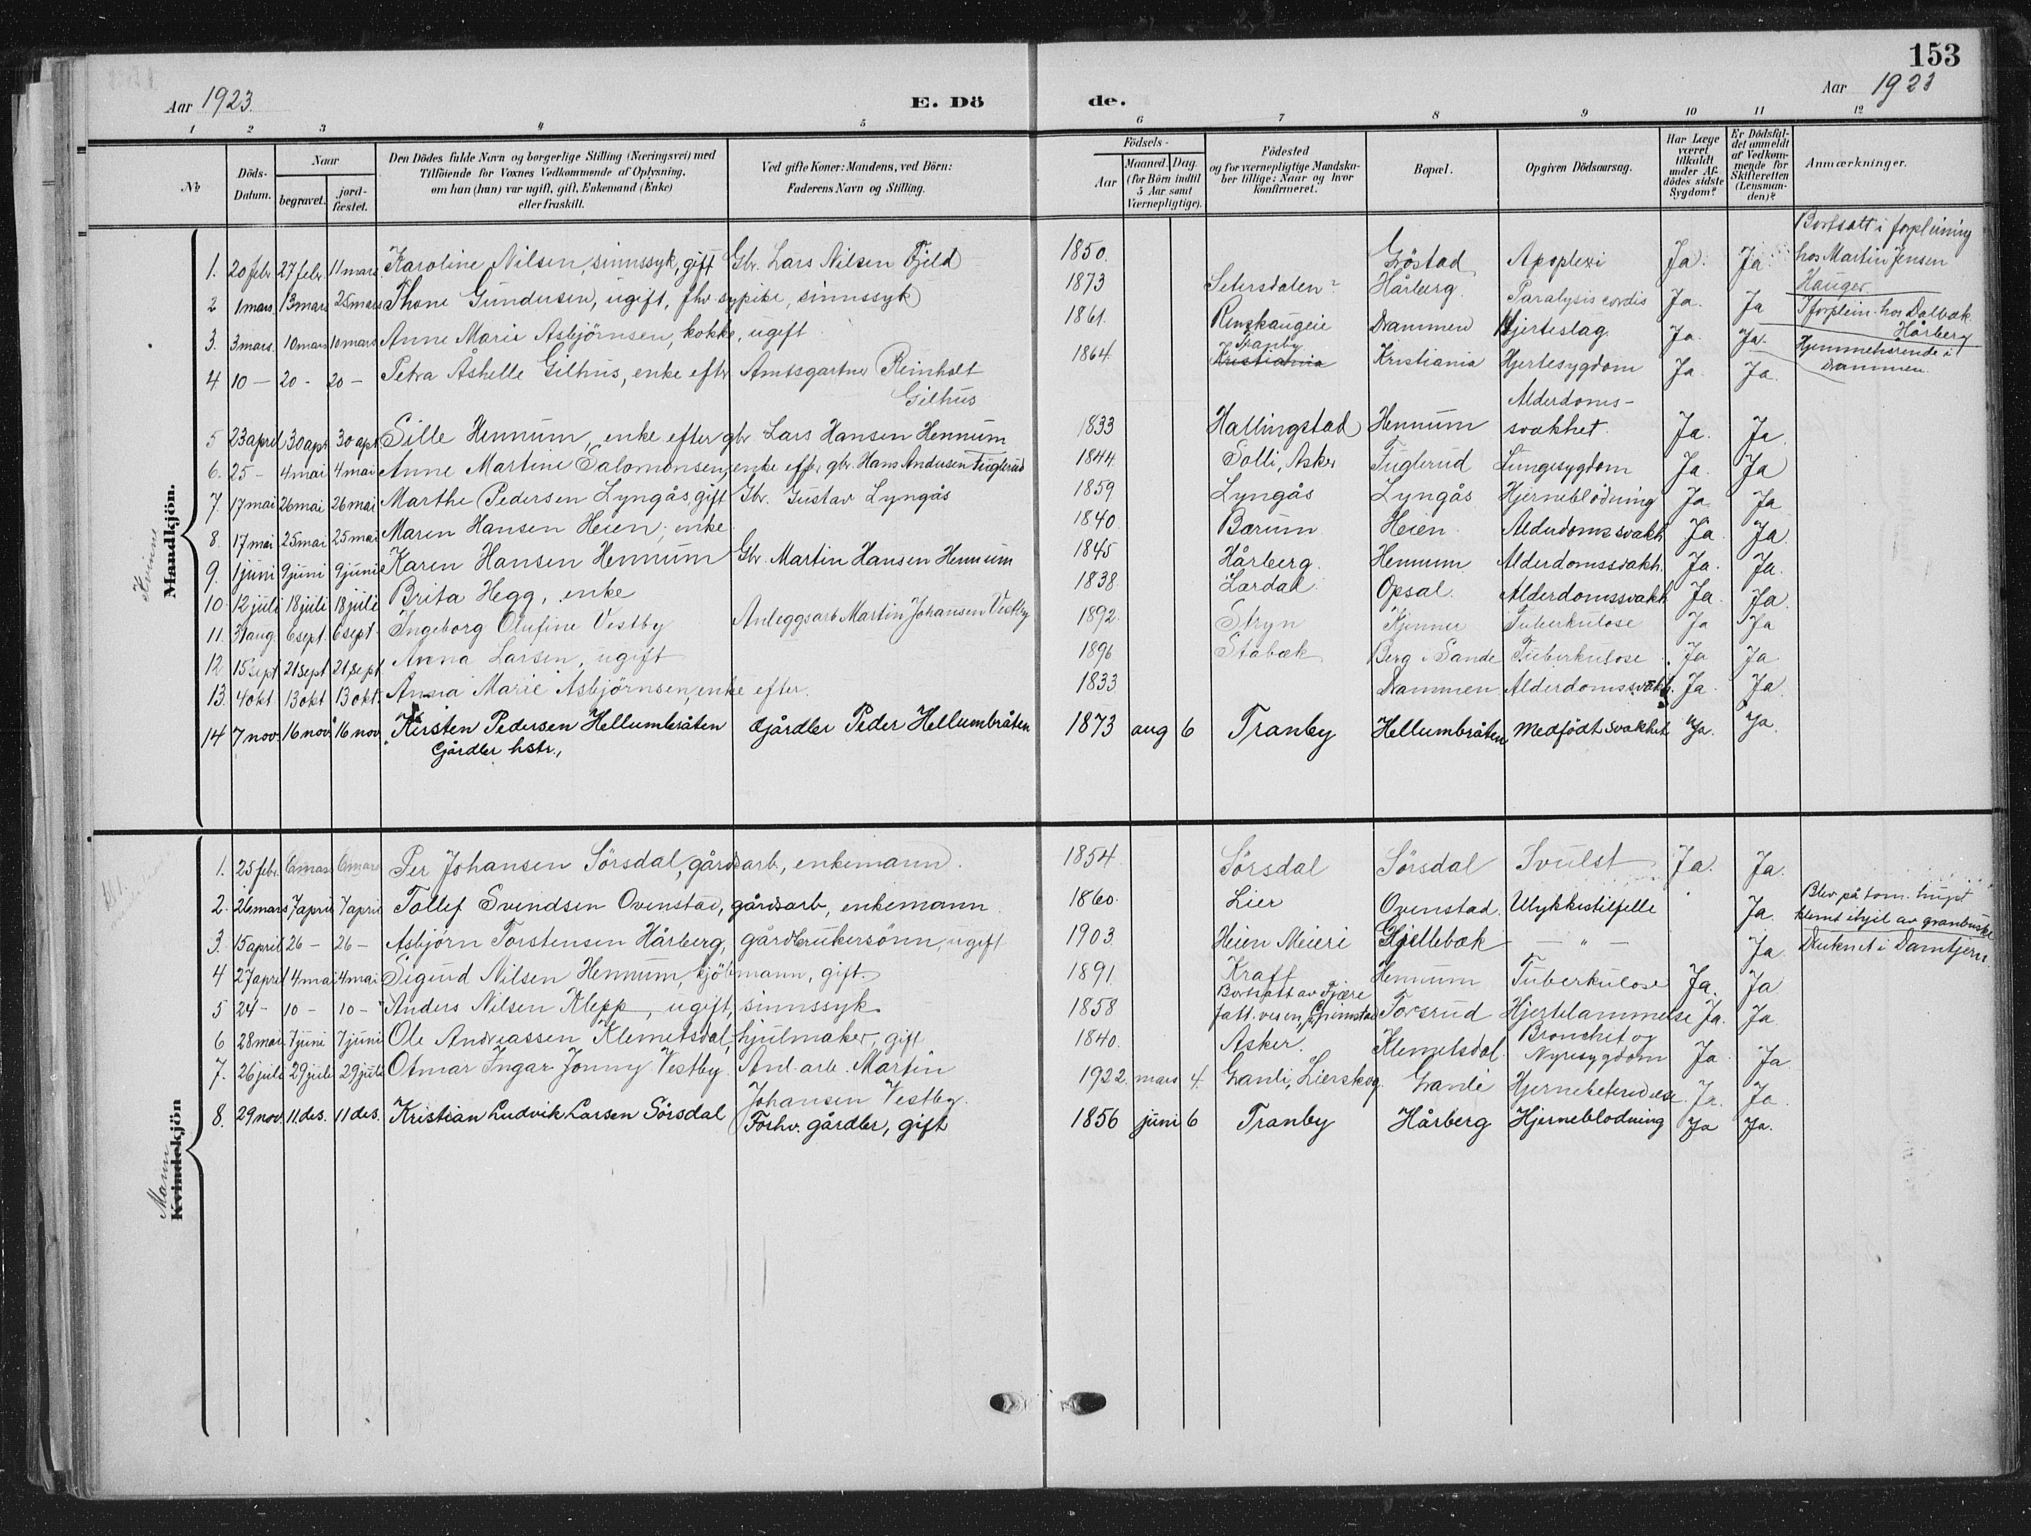 153
Aar 1923. E. Dö de. Aar 1923
1 2 3 4 5 6 7 8 9 10 11 12
No
Döds-Datum.
Naar
begravet.
jord-fæstet.
Den Dödes fulde Navn og borgerlige Stilling (Næringsvei) med
Tilföiende for Voxnes Vedkommende af Oplysning,
om han (hun) var ugift, gift, Enkemand (Enke)
eller fraskilt.
Ved gifte Koner: Mandens, ved Börn:
Faderens Navn og Stilling.
Födsels-
Aar
Maaned. Dag.
(for Börn indtil
5 Aar samt
Værnepligtige).
Födested
og for værnepligtige Mandska-
ber tillige: Naar og hvor
konfirmeret.
Bopæl.
Opgiven Dödsaarsag.
Har Læge
været
tilkaldt
under Af-
dödes sidste
Sygdom?
Er Dödsfal-
det anmeldt
af Vedkom-
mende for
Skifteretten
(Lensman-
den)?
Anmærkninger.
Kvinner
Mandkjön.
1. 20 febr. 27 febr. 11 mars Karoline Nilsen, sinnssyk, gift Gbr. Lars Nilsen Fjeld 1850. Gröstad Apoplexi Ja. Ja. Bortsatt i forpleining hos Martin Jensen Hauger
2 1 mars. 13 mars 25 mars Thone Gundersen, ugift, fhv. sypike, sinnssyk 1873 Setersdalen? Hårberg. Paralysis cordis Ja. Ja I forplein. hos Dalbæk Hårberg
3. 3 mars. 10 mars 10 mars Anne Marie Asbjörnsen, kokke, ugift 1861. Renskaugeie Drammen Hjerteslag Ja. Ja. Hjemmehörende i Drammen.
4 10 — 20 - 20 — Petra Åshelle Gilhus, enke efter Amtsgartner Reinholt Gilhus 1864. Tranby Kristiania Kristiania Hjertesygdom Ja. Ja.
5 23 april 30 apr. 30 apr. Sille Hennum, enke efter gbr. Lars Hansen Hennum 1833 Hallingstad Hennum Alderdoms-svakhet. Ja. Ja.
6. 25 - 4 mai 4 mai Anne Martine Salomonsen, enke eft. gbr. Hans Andersen Fuglerud 1844 Solli, Asker Fuglerud Lungesygdom Ja. Ja
7. 17 mai 26 mai 26 mai Marthe Pedersen Lyngås gift Gbr. Gustav Lyngås 1859 Lyngås Lyngås Hjerneblödning Ja Ja
8. 17 mai 25 mai 25 mai Maren Hansen Heien, enke 1840 Bærum Heien. Alderdomssvakh. Ja. Ja.
9. 1 juni 9 juni 9 juni Karen Hansen Hennum Gbr. Martin Hansen Hennum 1845 Hårberg. Hennum Alderdomssvakh. Ja. Ja.
10. 12 juli 18 juli 18 juli Brita Hegg, enke 1838 Lærdal Opsal. Alderdomssvakh. Ja Ja.
11. 31 aug. 6 sept. 6 sept. Ingeborg Olufine Vestby Anleggsarb. Martin Johansen Vestby 1892. Stryn Kjenner Tuberkulose Ja Ja
12 15 sept 21 sept 21 sept Anna Larsen, ugift 1896 Stabæk Berg i Sande Tuberkulose. Ja Ja.
13. 4 okt 13 okt 13 okt. Anna Marie Asbjörnsen, enke efter. 1833 Drammen Alderdomssvakh. Ja. Ja.
14 7 nov. 16 nov. 16 nov. Kirsten Pedersen Hellumbråten Gårdbr. hstr., Gårdbr Peder Hellumbråten 1873 aug 6 Tranby Hellumbråten Medfödt svakhet Ja. Ja.
Mann
Kvindekjön
1. 25 febr. 6 mars 6 mars Per Johansen Sörsdal, gårdsarb, enkemann. 1854. Sörsdal Sörsdal Svulst Ja. Ja.
2. 26 mars 7 april 7 april Tollef Svendsen Ovenstad, gårdsarb, enkemann. 1860. Lier Ovenstad. Ulykkestilfelle Ja. Blev på töm. hugst klemt ihjel av granbuske
3. 15 april 26 — 26 — Asbjörn Torstensen Hårberg, gårdbrukersönn, ugift 1903. Heien Meieri Gjellebæk — " — Ja Druknet i Damtjern.
4 27 april 4 mai 4 mai Sigurd Nilsen Hennum, kjöbmann, gift. 1891. Kraft Hennum Tuberkulose Ja. Ja
5 24 - 10 - 10 - Anders Nilsen Klepp, ugift, sinnssyk. 1858 Bortsatt av Fjære fatt.vesen, Grimstad Torsrud Hjertelammelse Ja. Ja
6 28 mai 7 juni 7 juni Ole Andreassen Klemetsdal, hjulmaker, gift 1840. Asker. Klemetsdal. Bronchit og Nyresygdom Ja Ja
7. 26 juli 29 juli 29 juli Otmar Ingar Jonny Vestby. Anl. arb. Martin Johansen Vestby. 1922. mars 4. Granli, Lierskog Granli Hjernebetendelse Ja. Ja.
8. 29 nov. 11. des. 11 des. Kristian Ludvik Larsen Sörsdal Forhv. gårdbr, gift 1856 juni 6 Tranby Hårberg Hjerneblodning Ja Ja.